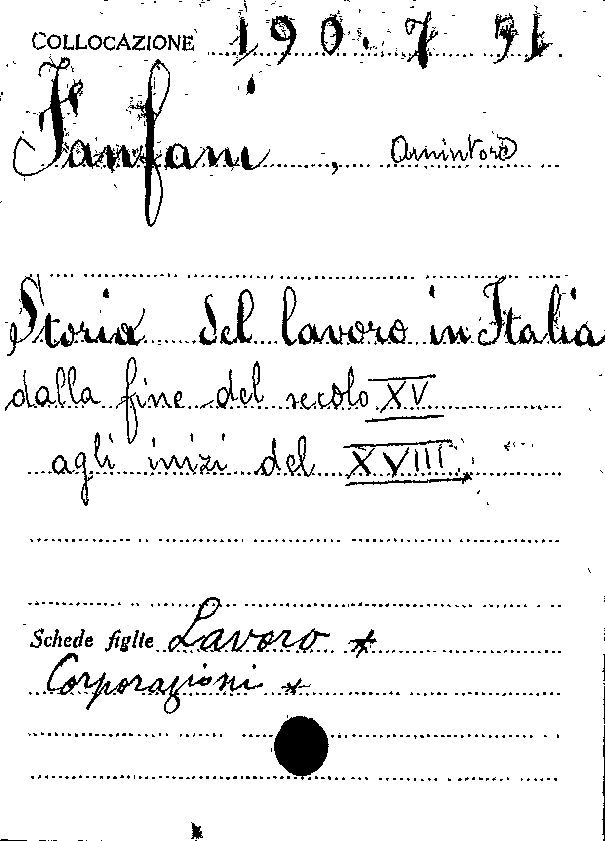 COLLOCAZIONE 190. 7 51
Fanfani, Amintore
Storia del lavoro in Italia
dalla fine del secolo XV
agli inizi del XVIII
Schede figlie Lavoro *
Corporazioni *